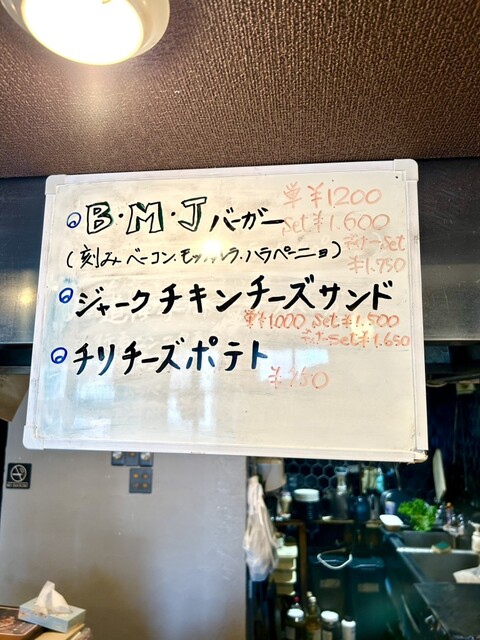 B・M・J バーガー 単 ¥1200
Set ¥1.600
(刻みベーコン・モッツァレラ・ハラペーニョ) ディナーSet
¥1.750
ジャークチキンチーズサンド
単¥1000 Set ¥1.500
ディナーSet ¥1.650
チリチーズポテト